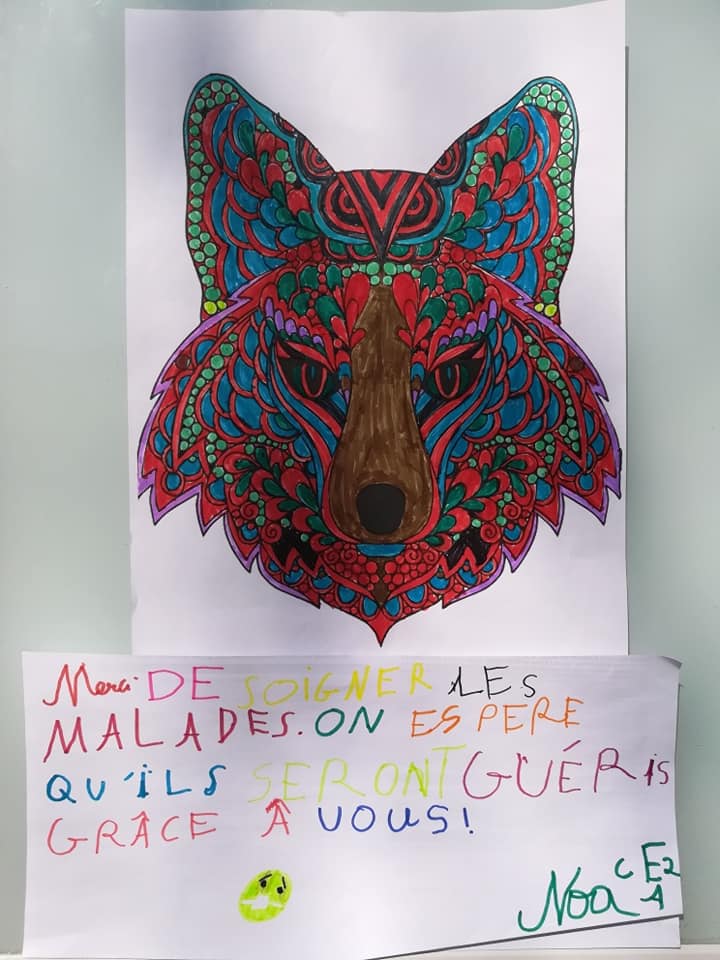 Merci DE SOIGNER LES
MALADES. ON ESPERE
QU'ILS SERONT GUÉRis
GRÂCE À VOUS!
Noa CE2
A